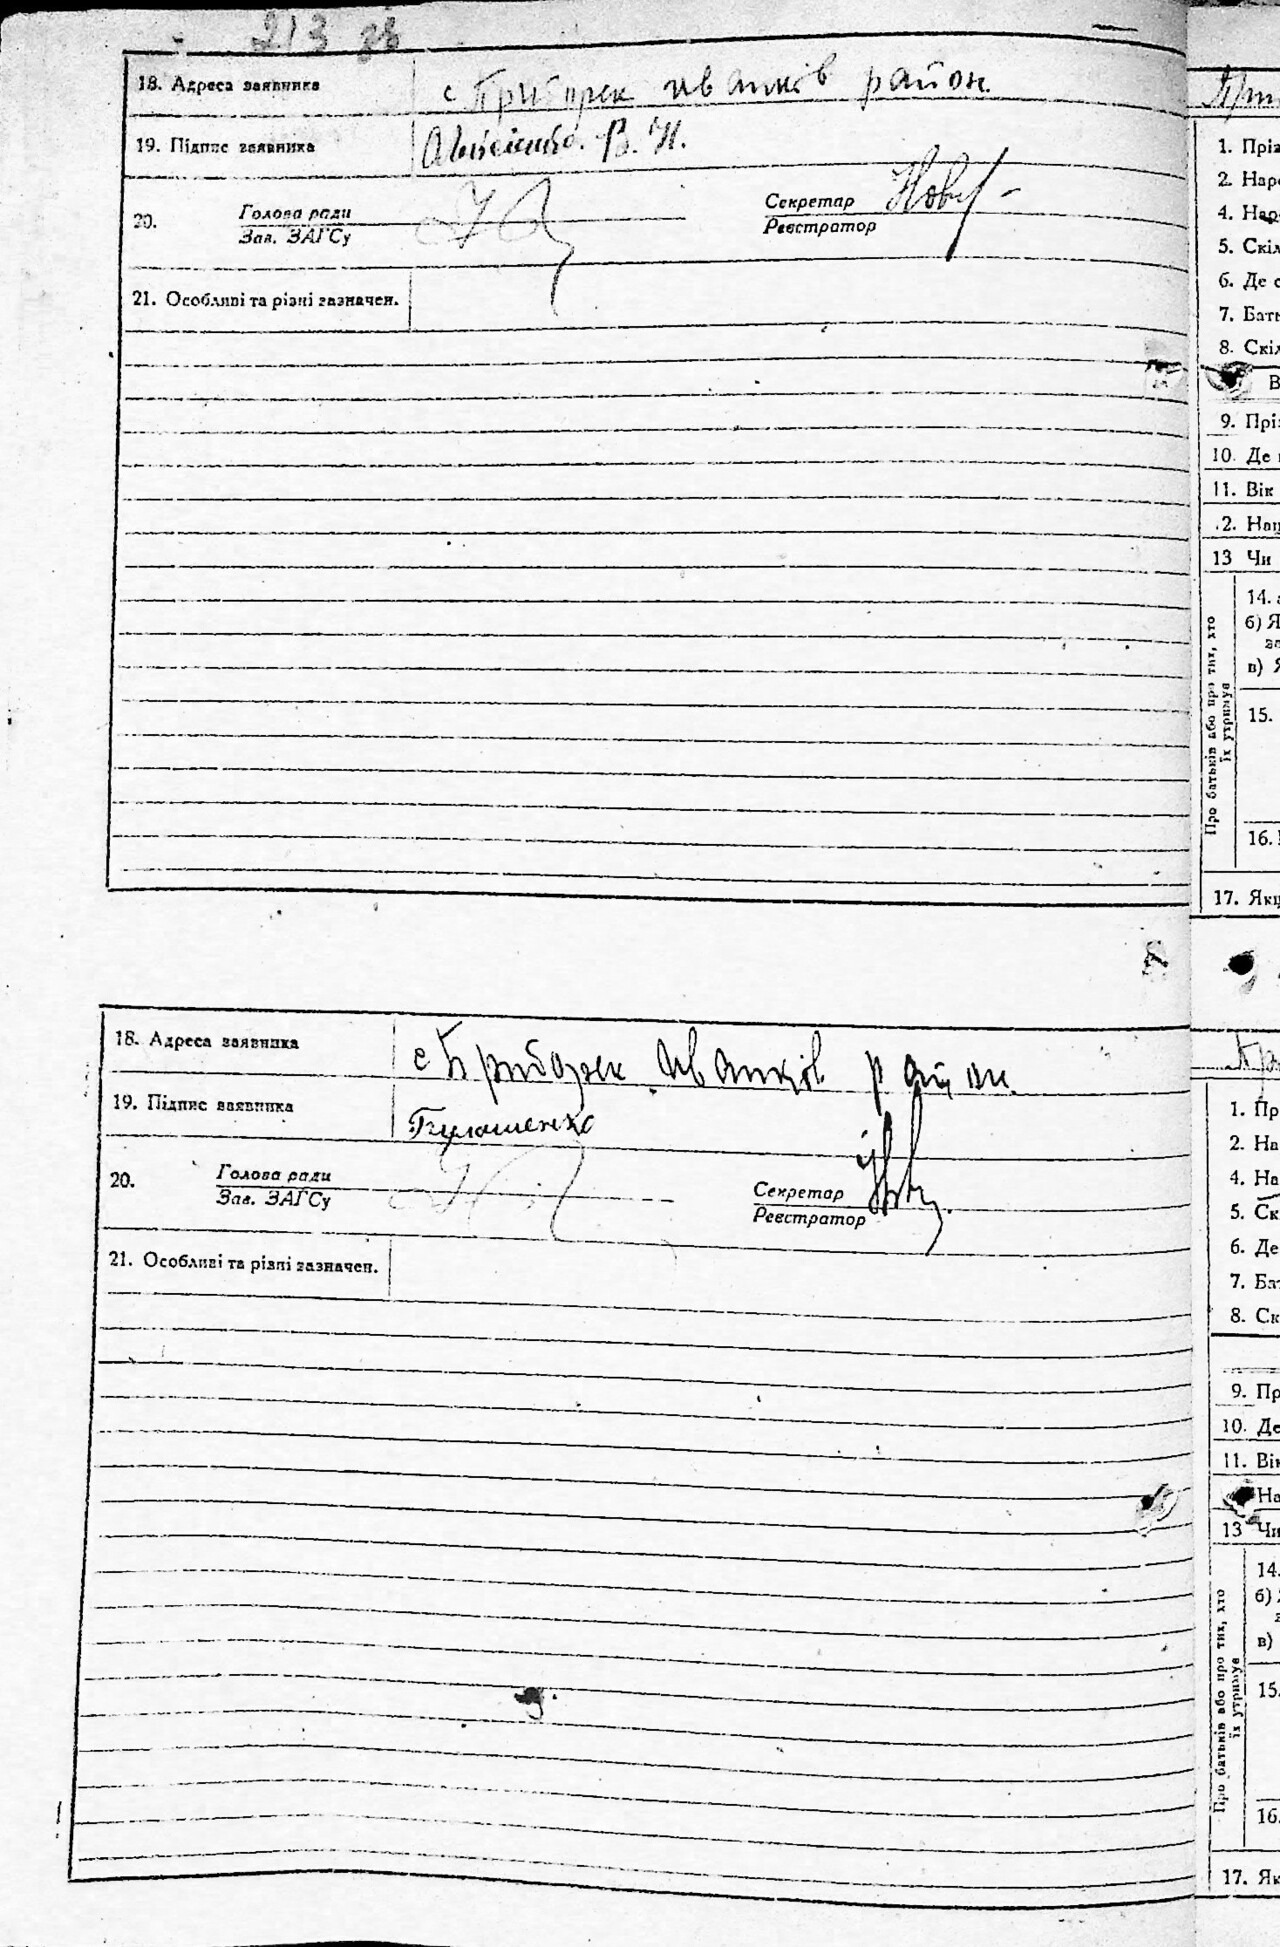 213 зв
18. Адреса заявника с Приборск Иванків район.
19. Підпис заявника В. И.
20. Голова ради
Зав. ЗАГСу
Секретар
Реєстратор
21. Особливі та різні зазначен.
18. Адреса заявника с Приборск Иванков район.
19. Підпис заявника
20. Голова ради
Зав. ЗАГСу
Секретар
Реєстратор
21. Особливі та різні зазначен.
1. Пріз
2. Наро
4. Нар
5. Скіл
6. Де с
7. Бать
8. Скіл
В
9. Пріз
10. Де
11. Вік
2. Нац
13 Чи
Про батьків або про тих, хто
їх утримує
14. а
б) Я
за
в) Я
15.
16.
17. Якщ
1. Пр
2. На
4. На
5. Ск
6. Де
7. Бат
8. Ск
9. Пр
10. Де
11. Вік
На
13 Чи
Про батьків або про тих, хто
їх утримує
14.
б)
з
в)
15.
16.
17. Як